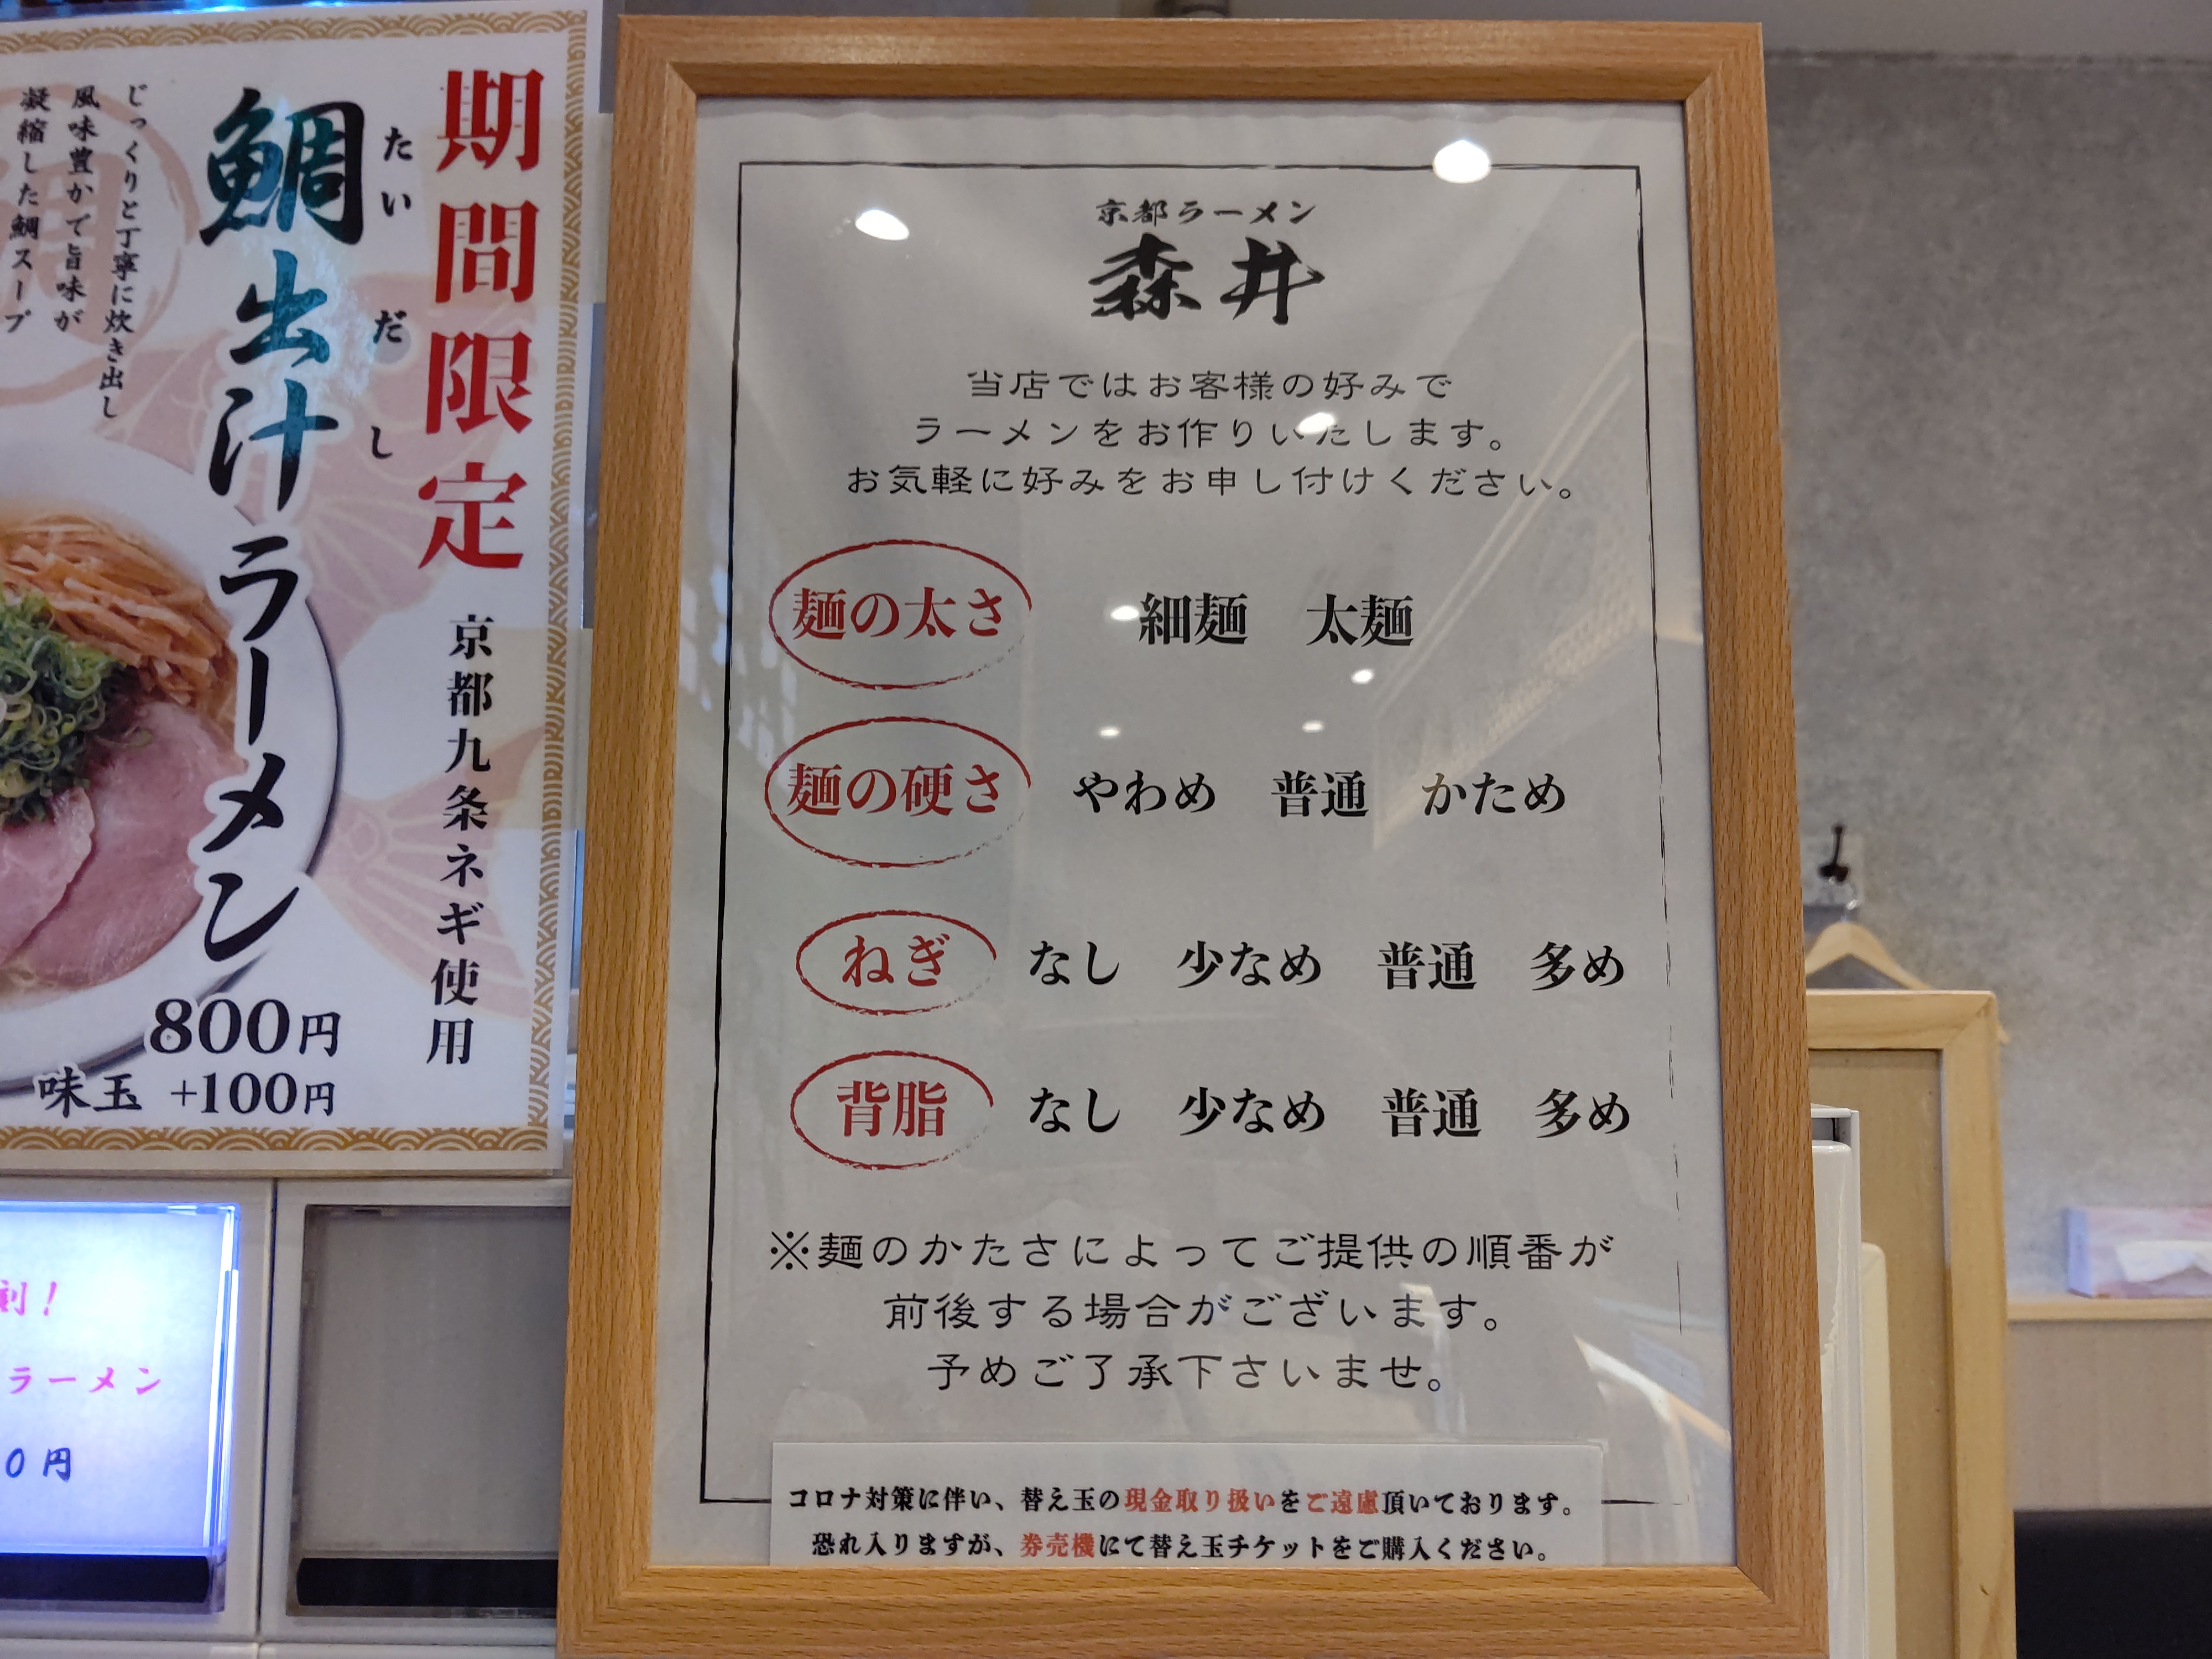 期間限定
京都九条ネギ使用
たいだし
鯛出汁ラーメン
じっくりと丁寧に炊き出し
風味豊かで旨味が
凝縮した鯛スープ
800円
味玉 +100円
刻!
ラーメン
0円
京都ラーメン
森井
当店ではお客様の好みで
ラーメンをお作りいたします。
お気軽に好みをお申し付けください。
麺の太さ 細麺 太麺
麺の硬さ やわめ 普通 かため
ねぎ なし 少なめ 普通 多め
背脂 なし 少なめ 普通 多め
※麺のかたさによってご提供の順番が
前後する場合がございます。
予めご了承下さいませ。
コロナ対策に伴い、替え玉の現金取り扱いをご遠慮頂いております。
恐れ入りますが、券売機にて替え玉チケットをご購入ください。